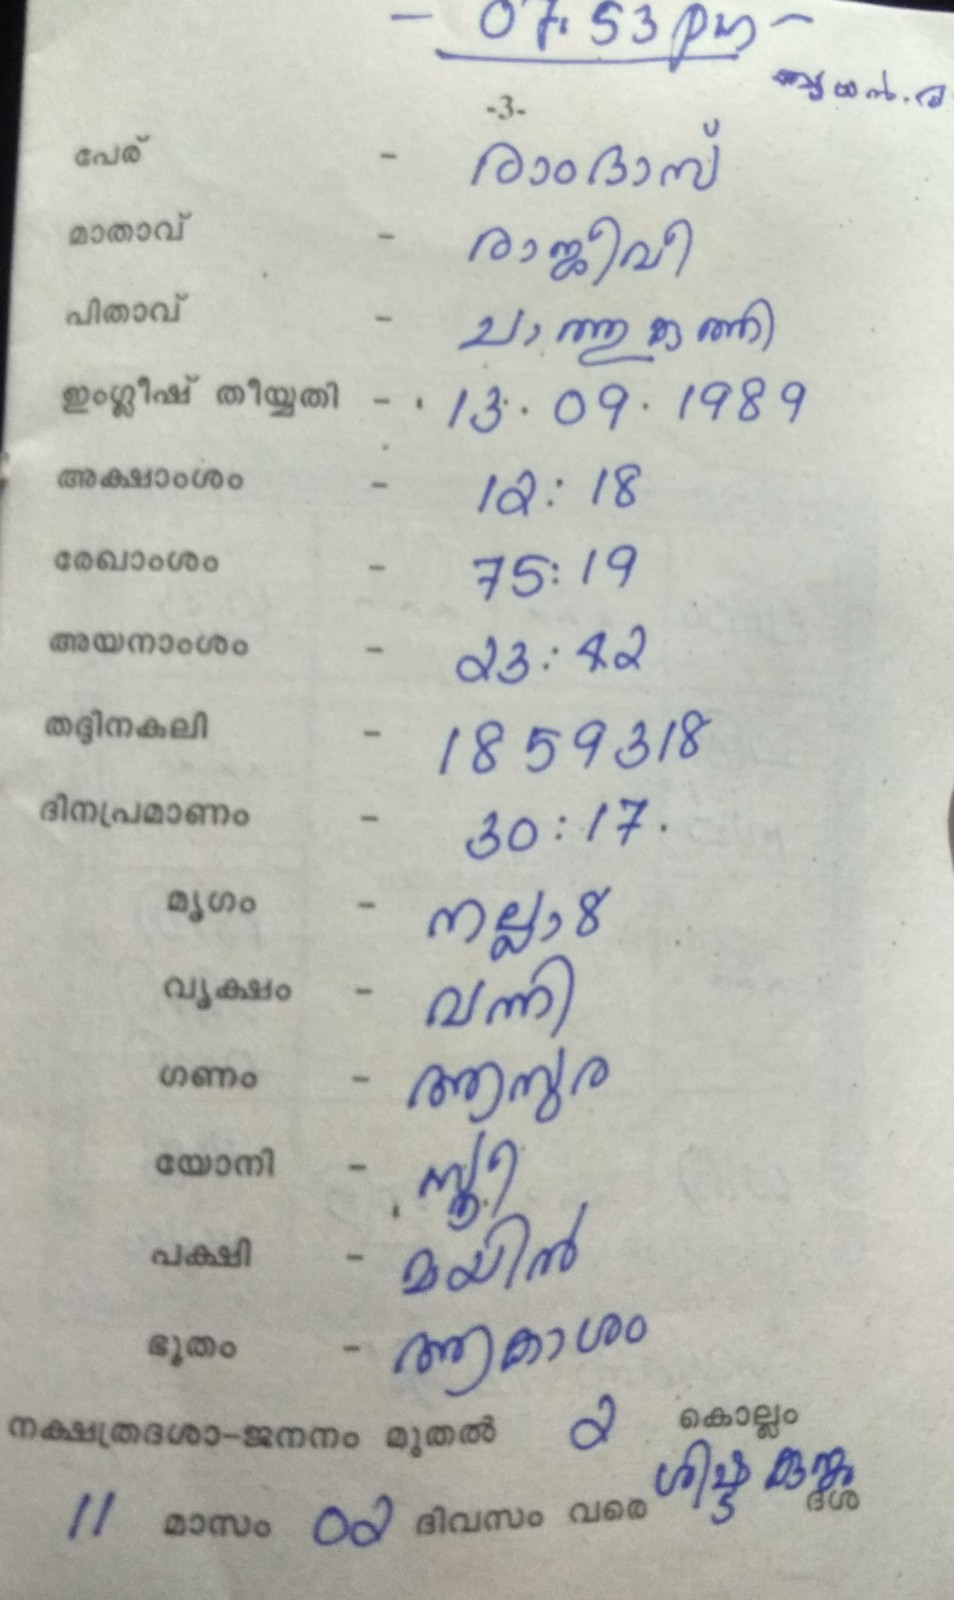 - 07.53 pm -
-3-
പേര് - രാംദാസ്
മാതാവ് - രാജീവി
പിതാവ് - ചാത്തുകുത്തി
ഇംഗ്ലീഷ് തീയ്യതി - 13.09.1989
അക്ഷാംശം - 12:18
രേഖാംശം - 75:19
അയനാംശം - 23:42
തദ്ദിനകലി - 1859318
ദിനപ്രമാണം - 30:17.
മൃഗം - നല്ലാൾ
വൃക്ഷം - വന്നി
ഗണം - ആസുര
യോനി - സ്ത്രീ
പക്ഷി - മയിൽ
ഭൂതം - ആകാശം
നക്ഷത്രദശാ-ജനനം മുതൽ 2 കൊല്ലം
11 മാസം 02 ദിവസം വരെ ശിഷ്ട ദശ